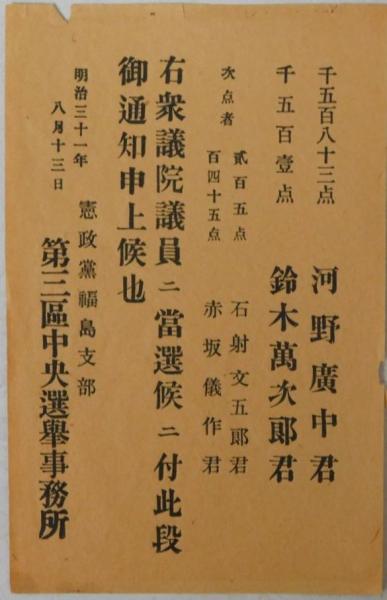 千五百八十三点 河野廣中君
千五百壹点 鈴木萬次郎君
次点者 貳百五点 石射文五郎君
百四十五点 赤坂儀作君
右衆議院議員ニ當選候ニ付此段
御通知申上候也
明治三十一年
八月十三日
憲政黨福島支部
第三區中央選擧事務所